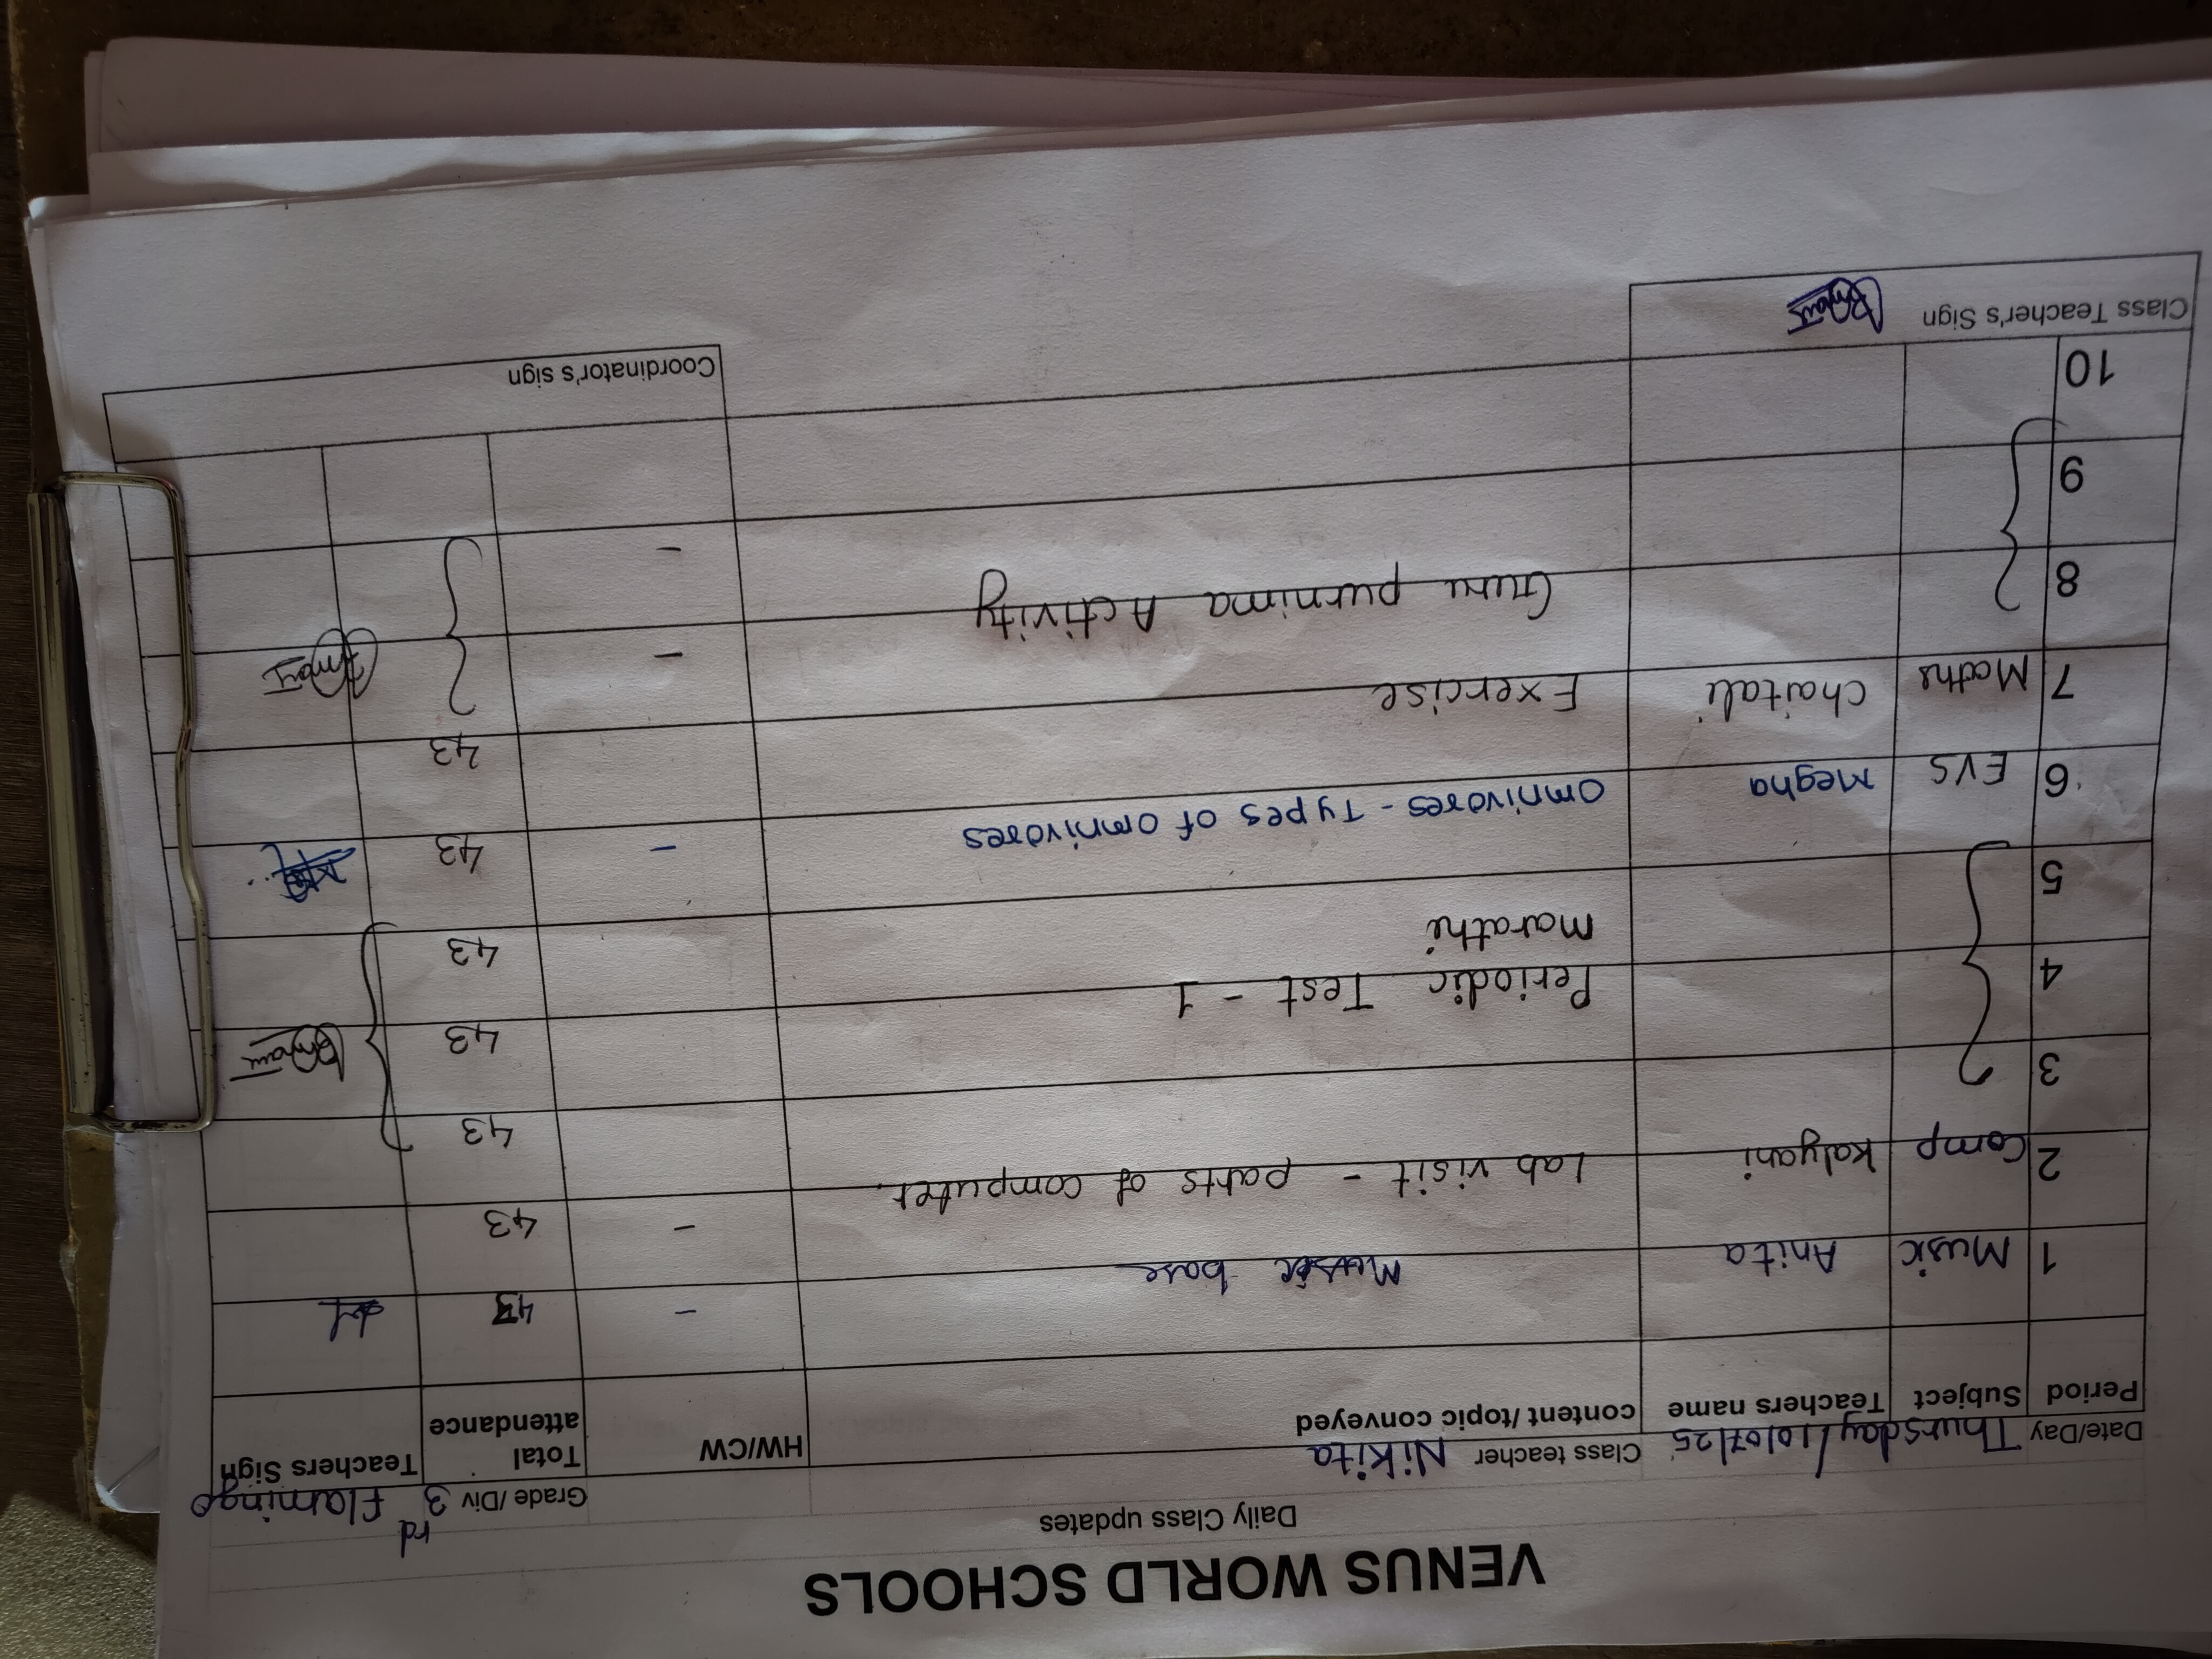 VENUS WORLD SCHOOLS
Daily Class updates
Date/Day Thursday/10/07/25 Class teacher Nikita Grade /Div 3rd Flamingo
Period Subject Teachers name content/topic conveyed HW/CW Total attendance Teachers Sign
1 Music Anita Music base - 43
2 Comp Kalyani Lab visit - parts of computer. - 43
3 43
4 Periodic Test - 1 43
Marathi
5 43
6 EVS Megha Omnivores - Types of omnivores - 43
7 Maths Chaitali Exercise - 43
8 Guru purnima Activity -
9
10
Class Teacher's Sign
Coordinator's sign